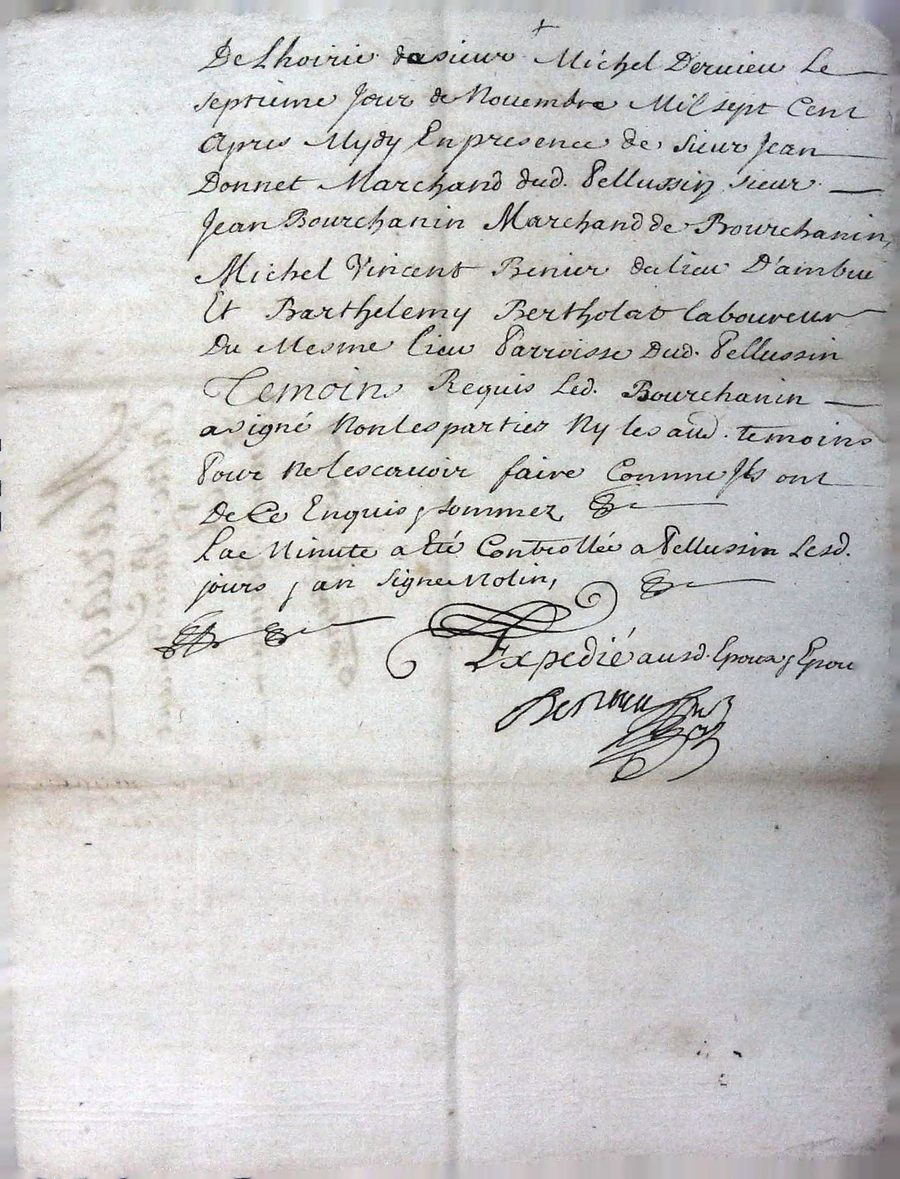 De Lhoirie dasieur Michel Dervieu Le
septieme Jour de Novembre Mil sept Cent
Apres Mydy En presence de sieur Jean
Donnet Marchand dud. Pellussin sieur
Jean Bourchanin Marchand de Bourchanin,
Michel Vincent Benier du lieu D'ambu
Et Barthelemy Bertholat laboureur
Du Mesme lieu Parroisse Dud. Pellussin
Temoins Requis Led. Bourchanin
a signé Non les parties Ny les aud. temoins
Pour Ne lescavoir faire Comme Jls ont
De Ce Enquis & sommez
La Minute a Eté Controllée a Pellussin Lesd.
jours & an signe Molin,
Expedié ausd. Epoux & Epou